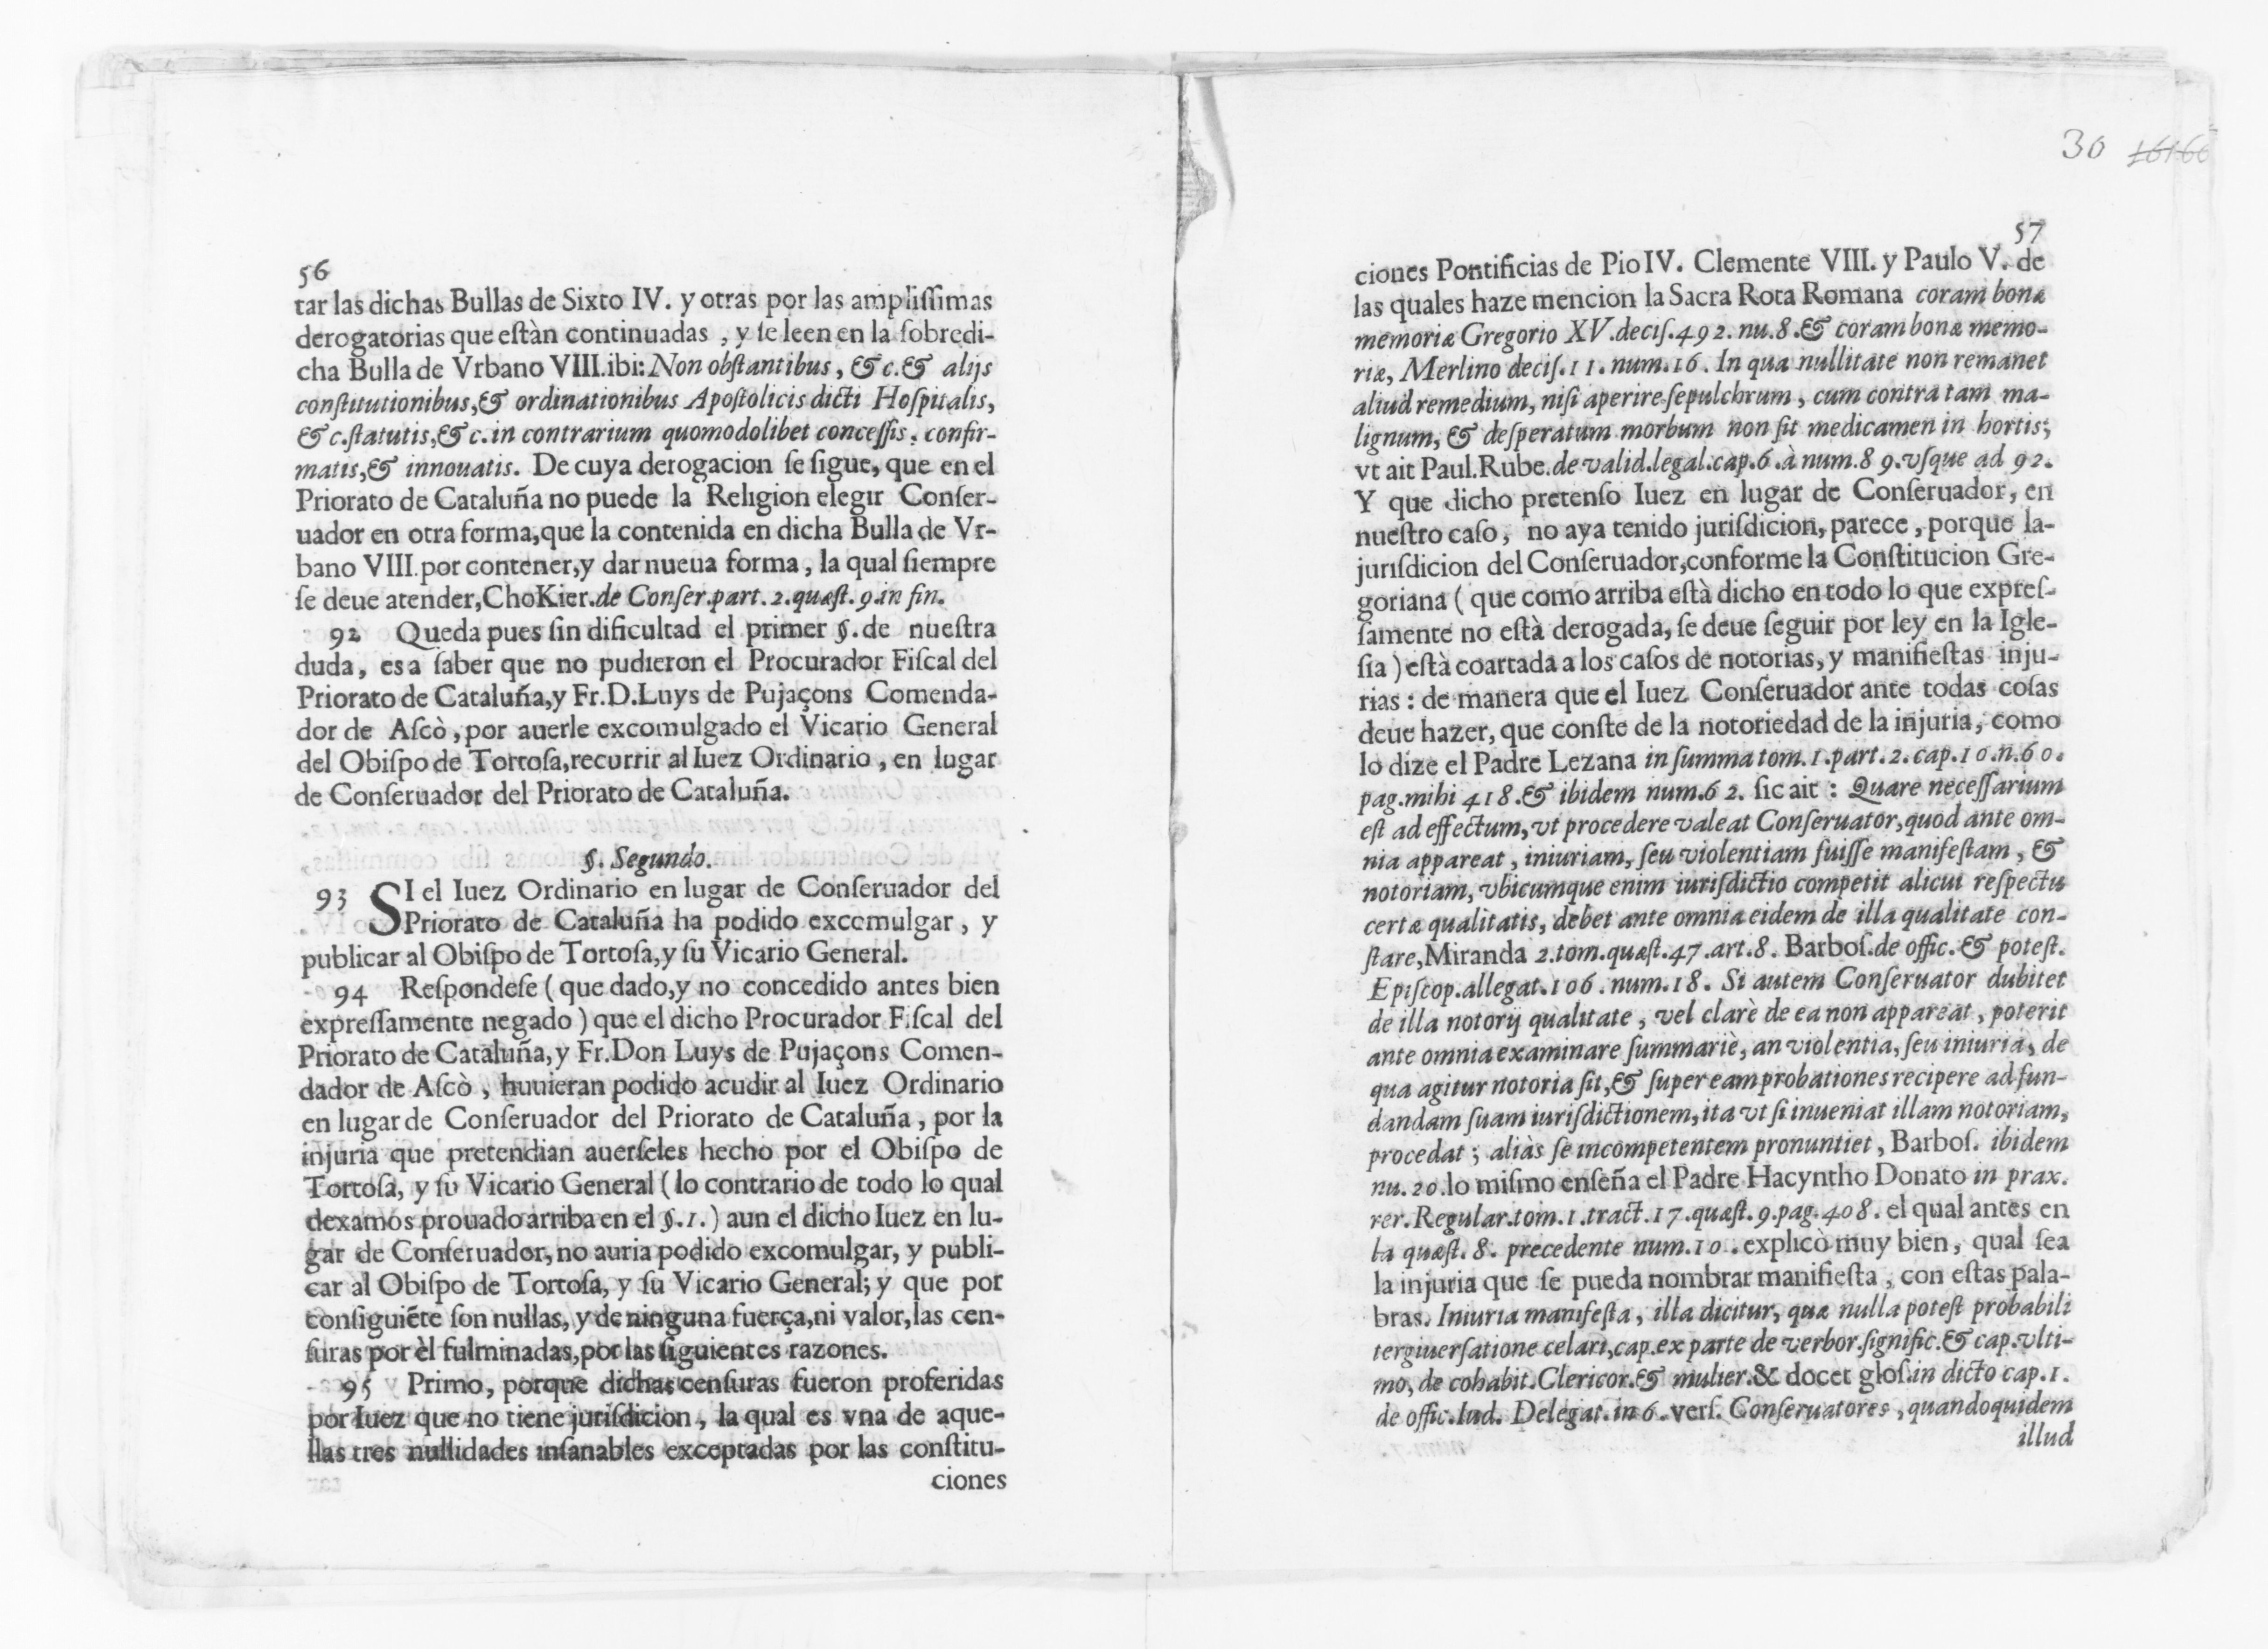 56
tar las dichas Bullas de Sixto IV. y otras por las amplissimas
derogatorias que estàn continuadas, y se leen en la sobredi-
cha Bulla de Vrbano VIII. ibi: Non obstantibus, & c. & alijs
constitutionibus, & ordinationibus Apostolicis dicti Hospitalis,
& c. statutis, & c. in contrarium quomodolibet concessis, confir-
matis, & innouatis. De cuya derogacion se sigue, que en el
Priorato de Cataluña no puede la Religion elegir Conser-
uador en otra forma, que la contenida en dicha Bulla de Vr-
bano VIII. por contener, y dar nueua forma, la qual siempre
se deue atender, ChoKier. de Conser. part. 2. quæst. 9. in fin.
92 Queda pues sin dificultad el primer §. de nuestra
duda, es a saber que no pudieron el Procurador Fiscal del
Priorato de Cataluña, y Fr. D. Luys de Pujaçons Comenda-
dor de Ascò, por auerle excomulgado el Vicario General
del Obispo de Tortosa, recurrir al Iuez Ordinario, en lugar
de Conseruador del Priorato de Cataluña.
§. Segundo.
93 SI el Iuez Ordinario en lugar de Conseruador del
Priorato de Cataluña ha podido excomulgar, y
publicar al Obispo de Tortosa, y su Vicario General.
94 Respondese ( que dado, y no concedido antes bien
expressamente negado ) que el dicho Procurador Fiscal del
Priorato de Cataluña, y Fr. Don Luys de Pujaçons Comen-
dador de Ascò, huuieran podido acudir al Iuez Ordinario
en lugar de Conseruador del Priorato de Cataluña, por la
injuria que pretendian auerseles hecho por el Obispo de
Tortosa, y su Vicario General ( lo contrario de todo lo qual
dexamos prouado arriba en el §. 1. ) aun el dicho Iuez en lu-
gar de Conseruador, no auria podido excomulgar, y publi-
car al Obispo de Tortosa, y su Vicario General; y que por
consiguiẽte son nullas, y de ninguna fuerça, ni valor, las cen-
suras por èl fulminadas, por las siguientes razones.
95 Primo, porque dichas censuras fueron proferidas
por Iuez que no tiene jurisdicion, la qual es vna de aque-
llas tres nullidades insanables exceptadas por las constitu-
ciones
30
57
ciones Pontificias de Pio IV. Clemente VIII. y Paulo V. de
las quales haze mencion la Sacra Rota Romana coram bonæ
memoriæ Gregorio XV. decis. 492. nu. 8. & coram bonæ memo-
riæ, Merlino decis. 11. num. 16. In qua nullitate non remanet
aliud remedium, nisi aperire sepulchrum, cum contra tam ma-
lignum, & desperatum morbum non sit medicamen in hortis;
vt ait Paul. Rube. de valid. legal. cap. 6. à num. 89. vsque ad 92.
Y que dicho pretenso Iuez en lugar de Conseruador, en
nuestro caso, no aya tenido jurisdicion, parece, porque la-
jurisdicion del Conseruador, conforme la Constitucion Gre-
goriana ( que como arriba està dicho en todo lo que expres-
samente no està derogada, se deue seguir por ley en la Igle-
sia ) està coartada a los casos de notorias, y manifiestas inju-
rias : de manera que el Iuez Conseruador ante todas cosas
deue hazer, que conste de la notoriedad de la injuria, como
lo dize el Padre Lezana in summa tom. 1. part. 2. cap. 10. n. 60.
pag. mihi 418. & ibidem num. 62. sic ait : Quare necessarium
est ad effectum, vt procedere valeat Conseruator, quod ante om-
nia appareat, iniuriam, seu violentiam fuisse manifestam, &
notoriam, vbicumque enim iurisdictio competit alicui respectu
certæ qualitatis, debet ante omnia eidem de illa qualitate con-
stare, Miranda 2. tom. quæst. 47. art. 8. Barbos. de offic. & potest.
Episcop. allegat. 106. num. 18. Si autem Conseruator dubitet
de illa notorij qualitate, vel clarè de ea non appareat, poterit
ante omnia examinare summariè, an violentia, seu iniuria, de
qua agitur notoria sit, & super eam probationes recipere ad fun-
dandam suam iurisdictionem, ita vt si inueniat illam notoriam,
procedat ; aliàs se incompetentem pronuntiet, Barbos. ibidem
nu. 20. lo mismo enseña el Padre Hacyntho Donato in prax.
rer. Regular. tom. 1. tract. 17. quæst. 9. pag. 408. el qual antes en
la quæst. 8. precedente num. 10. explicò muy bien, qual sea
la injuria que se pueda nombrar manifiesta, con estas pala-
bras. Iniuria manifesta, illa dicitur, quæ nulla potest probabili
tergiuersatione celari, cap. ex parte de verbor. signific. & cap. vlti-
mo, de cohabit. Clericor. & mulier. & docet glos. in dicto cap. 1.
de offic. Iud. Delegat. in 6. vers. Conseruatores, quandoquidem
illud